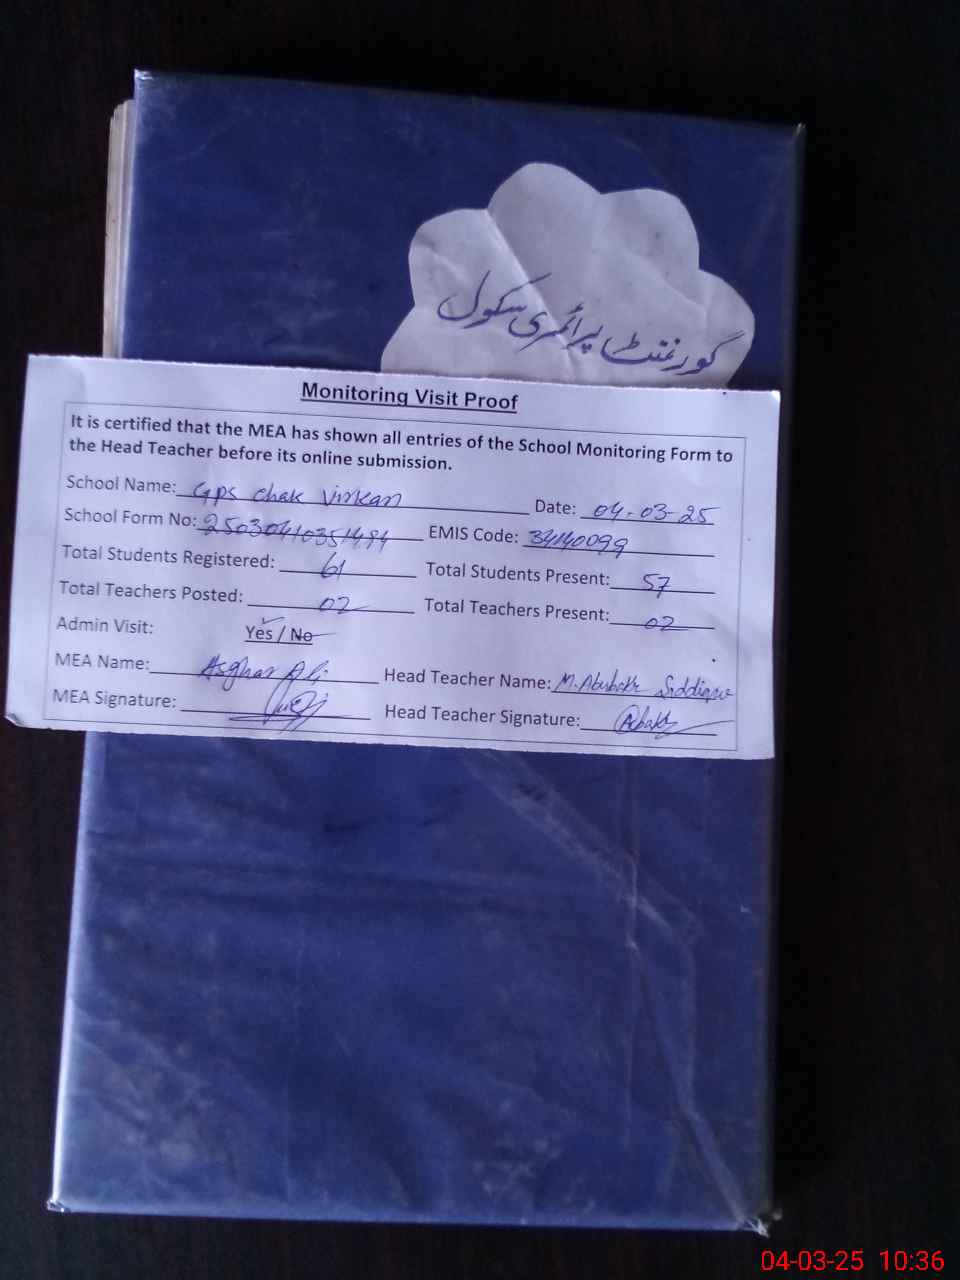 گورنمنٹ پرائمری سکول
Monitoring Visit Proof
It is certified that the MEA has shown all entries of the School Monitoring Form to
the Head Teacher before its online submission.
School Name: GPS Chak Virkan Date: 04-03-25
School Form No: 25030410351484 EMIS Code: 34140099
Total Students Registered: 61 Total Students Present: 57
Total Teachers Posted: 02 Total Teachers Present: 02
Admin Visit: Yes / No
MEA Name: Asghar Ali Head Teacher Name: M. Abubakr Siddique
MEA Signature: Head Teacher Signature:
04-03-25 10:36